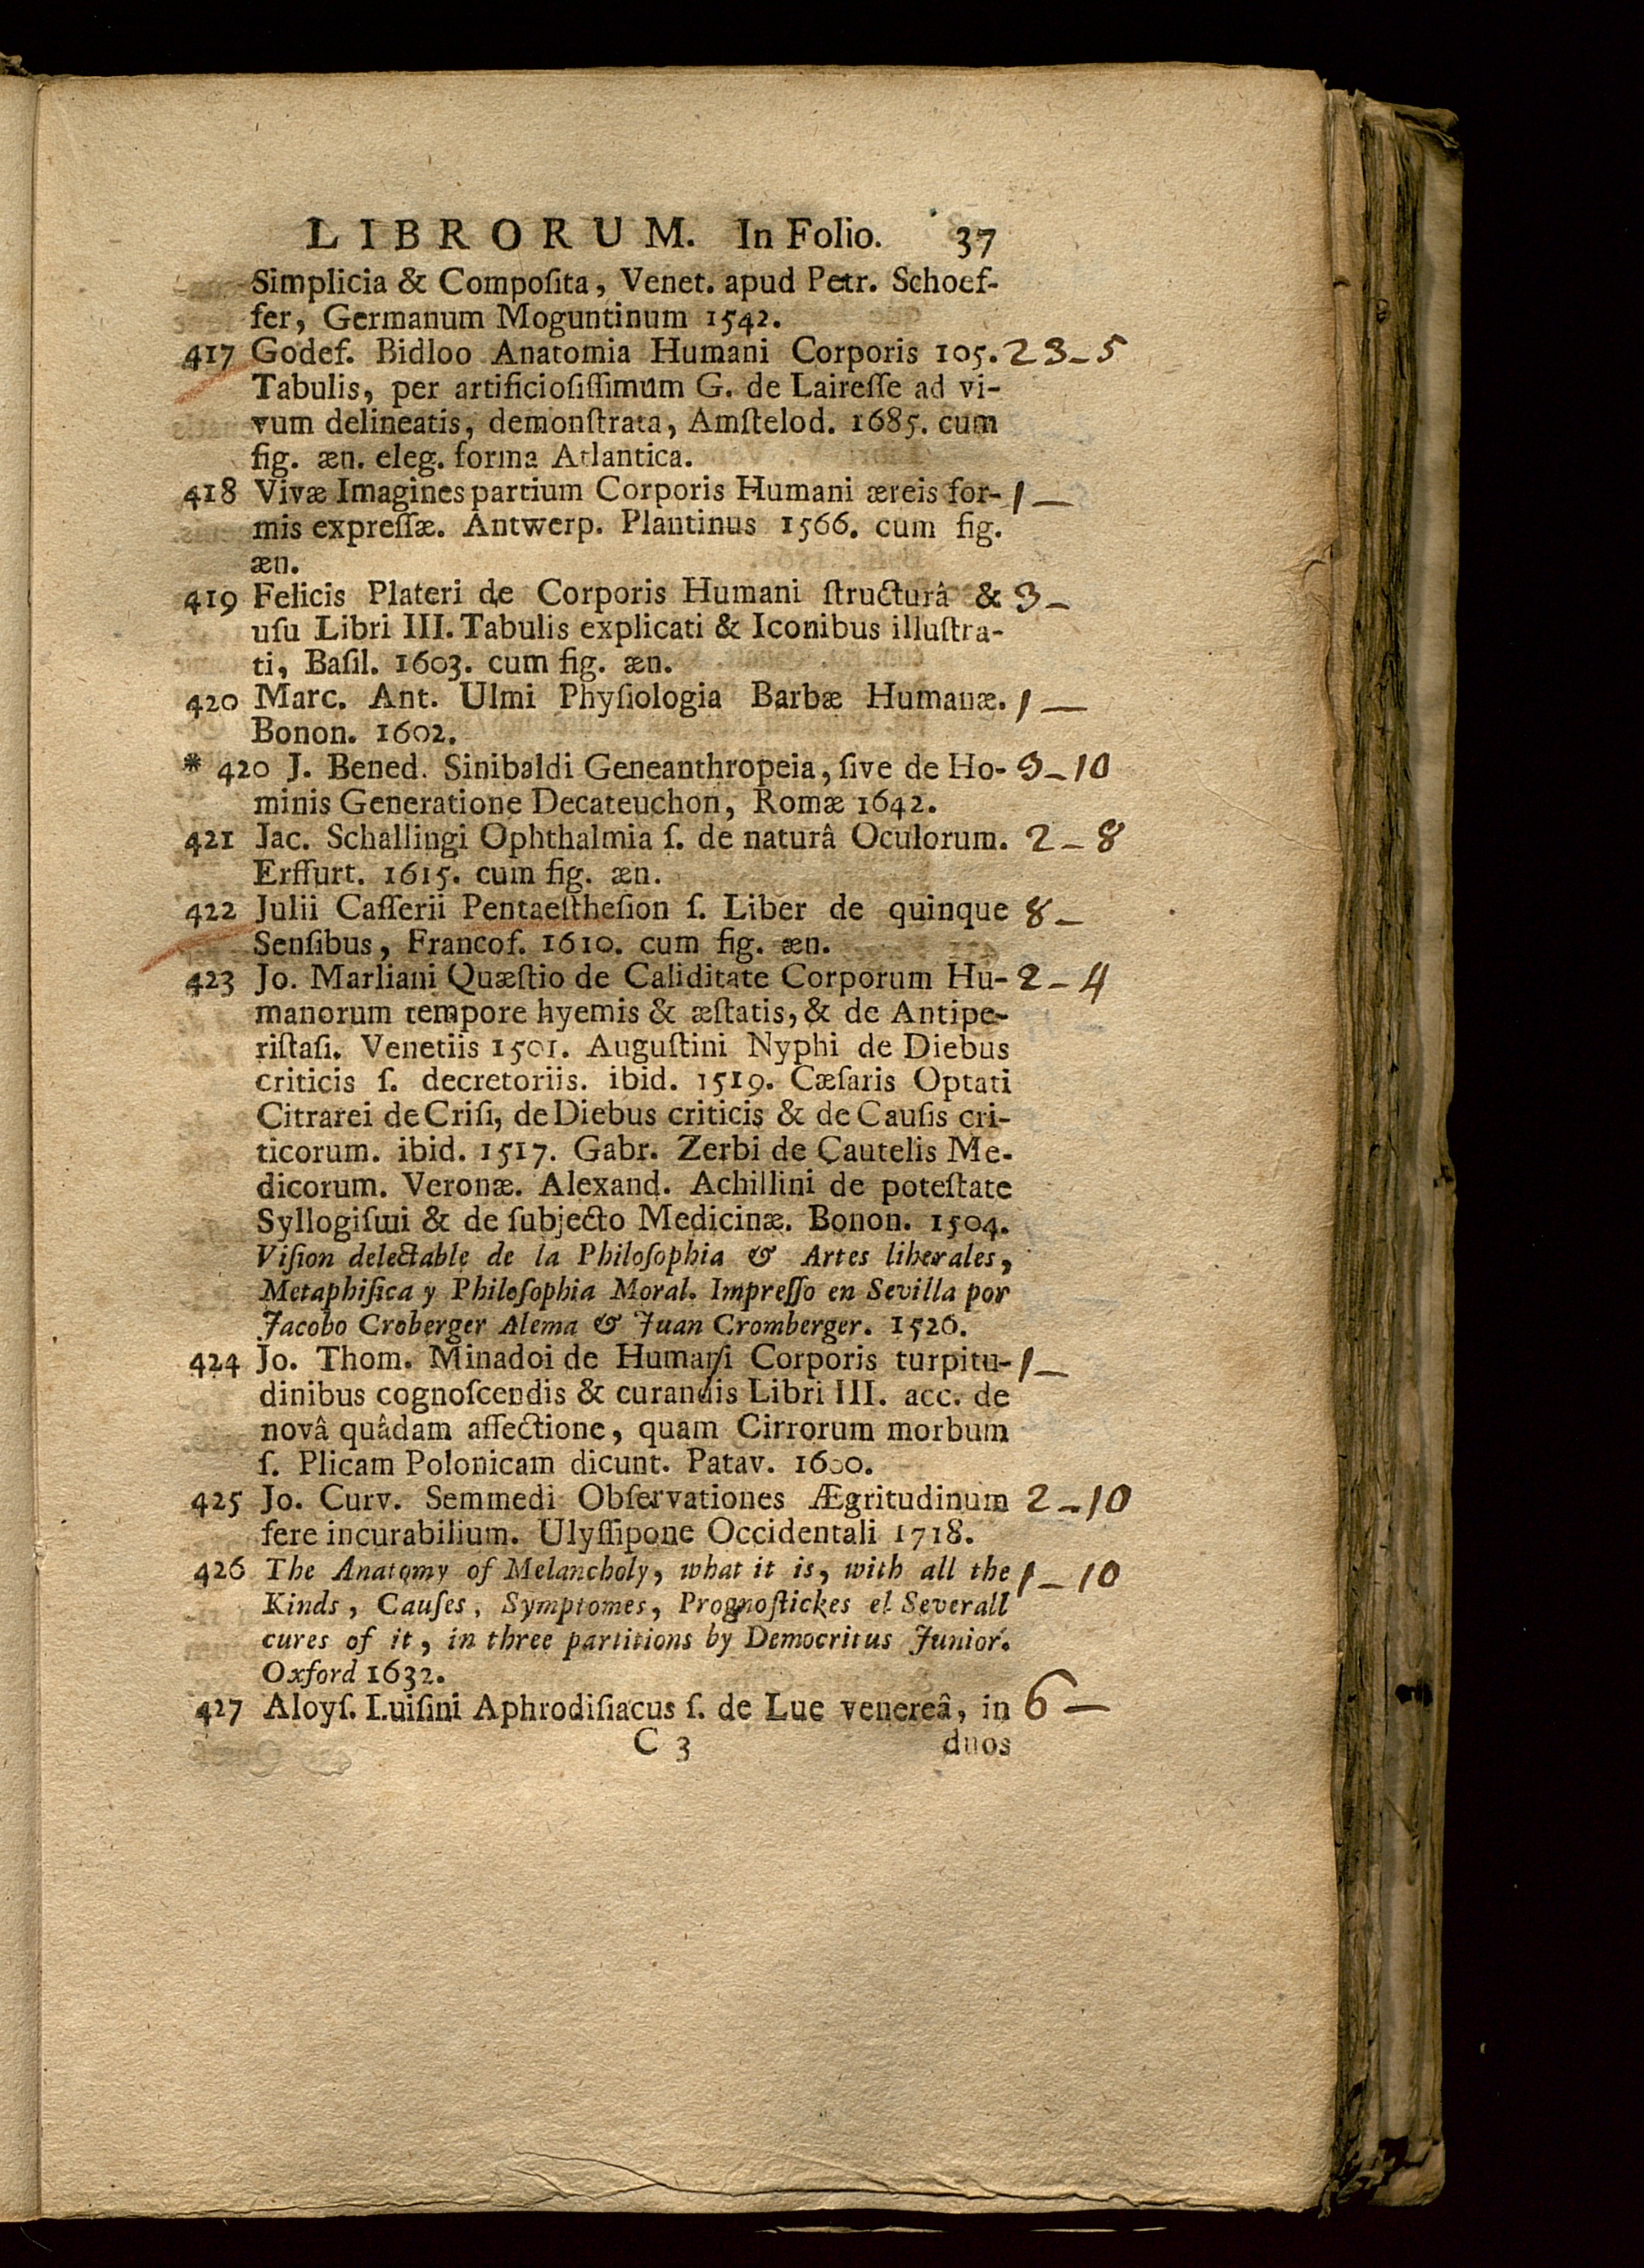 LIBRORUM. In Folio. 37
Simplicia & Compoſita, Venet. apud Petr. Schoef-
fer, Germanum Moguntinum 1542.
417 Godef. Bidloo Anatomia Humani Corporis 105. 23-5
Tabulis, per artificioſiſſimum G. de Laireſſe ad vi-
vum delineatis, demonſtrata, Amſtelod. 1685. cum
fig. æn. eleg. forma Atlantica.
418 Vivæ Imagines partium Corporis Humani æreis for- 1 —
mis expreſſæ. Antwerp. Plantinus 1566. cum fig.
æn.
419 Felicis Plateri de Corporis Humani ſtructurâ & 3 —
uſu Libri III. Tabulis explicati & Iconibus illuſtra-
ti, Baſil. 1603. cum fig. æn.
420 Marc. Ant. Ulmi Phyſiologia Barbæ Humanæ. 1 —
Bonon. 1602.
* 420 J. Bened. Sinibaldi Geneanthropeia, ſive de Ho- 3-10
minis Generatione Decateuchon, Romæ 1642.
421 Jac. Schallingi Ophthalmia ſ. de naturâ Oculorum. 2-8
Erffurt. 1615. cum fig. æn.
422 Julii Caſſerii Pentaeſtheſion ſ. Liber de quinque 8 —
Senſibus, Francof. 1610. cum fig. æn.
423 Jo. Marliani Quæſtio de Caliditate Corporum Hu- 2-4
manorum tempore hyemis & æſtatis, & de Antipe-
riſtaſi. Venetiis 1501. Auguſtini Nyphi de Diebus
criticis ſ. decretoriis. ibid. 1519. Cæſaris Optati
Citrarei de Criſi, de Diebus criticis & de Cauſis cri-
ticorum. ibid. 1517. Gabr. Zerbi de Cautelis Me-
dicorum. Veronæ. Alexand. Achillini de poteſtate
Syllogiſmi & de ſubjecto Medicinæ. Bonon. 1504.
Viſion delectable de la Philoſophia & Artes liberales,
Metaphiſica y Philoſophia Moral. Impreſſo en Sevilla por
Jacobo Croberger Alema & Juan Cromberger. 1526.
424 Jo. Thom. Minadoi de Humani Corporis turpitu- 1 —
dinibus cognoſcendis & curandis Libri III. acc. de
novâ quâdam affectione, quam Cirrorum morbum
ſ. Plicam Polonicam dicunt. Patav. 1600.
425 Jo. Curv. Semmedi Obſervationes Ægritudinum 2-10
fere incurabilium. Ulyſſipone Occidentali 1718.
426 The Anatomy of Melancholy, what it is, with all the 1-10
Kinds, Cauſes, Symptomes, Prognoſtickes el Severall
cures of it, in three partitions by Democritus Junior.
Oxford 1632.
427 Aloyſ. Luiſini Aphrodiſiacus ſ. de Lue venereâ, in 6 —
C 3 duos